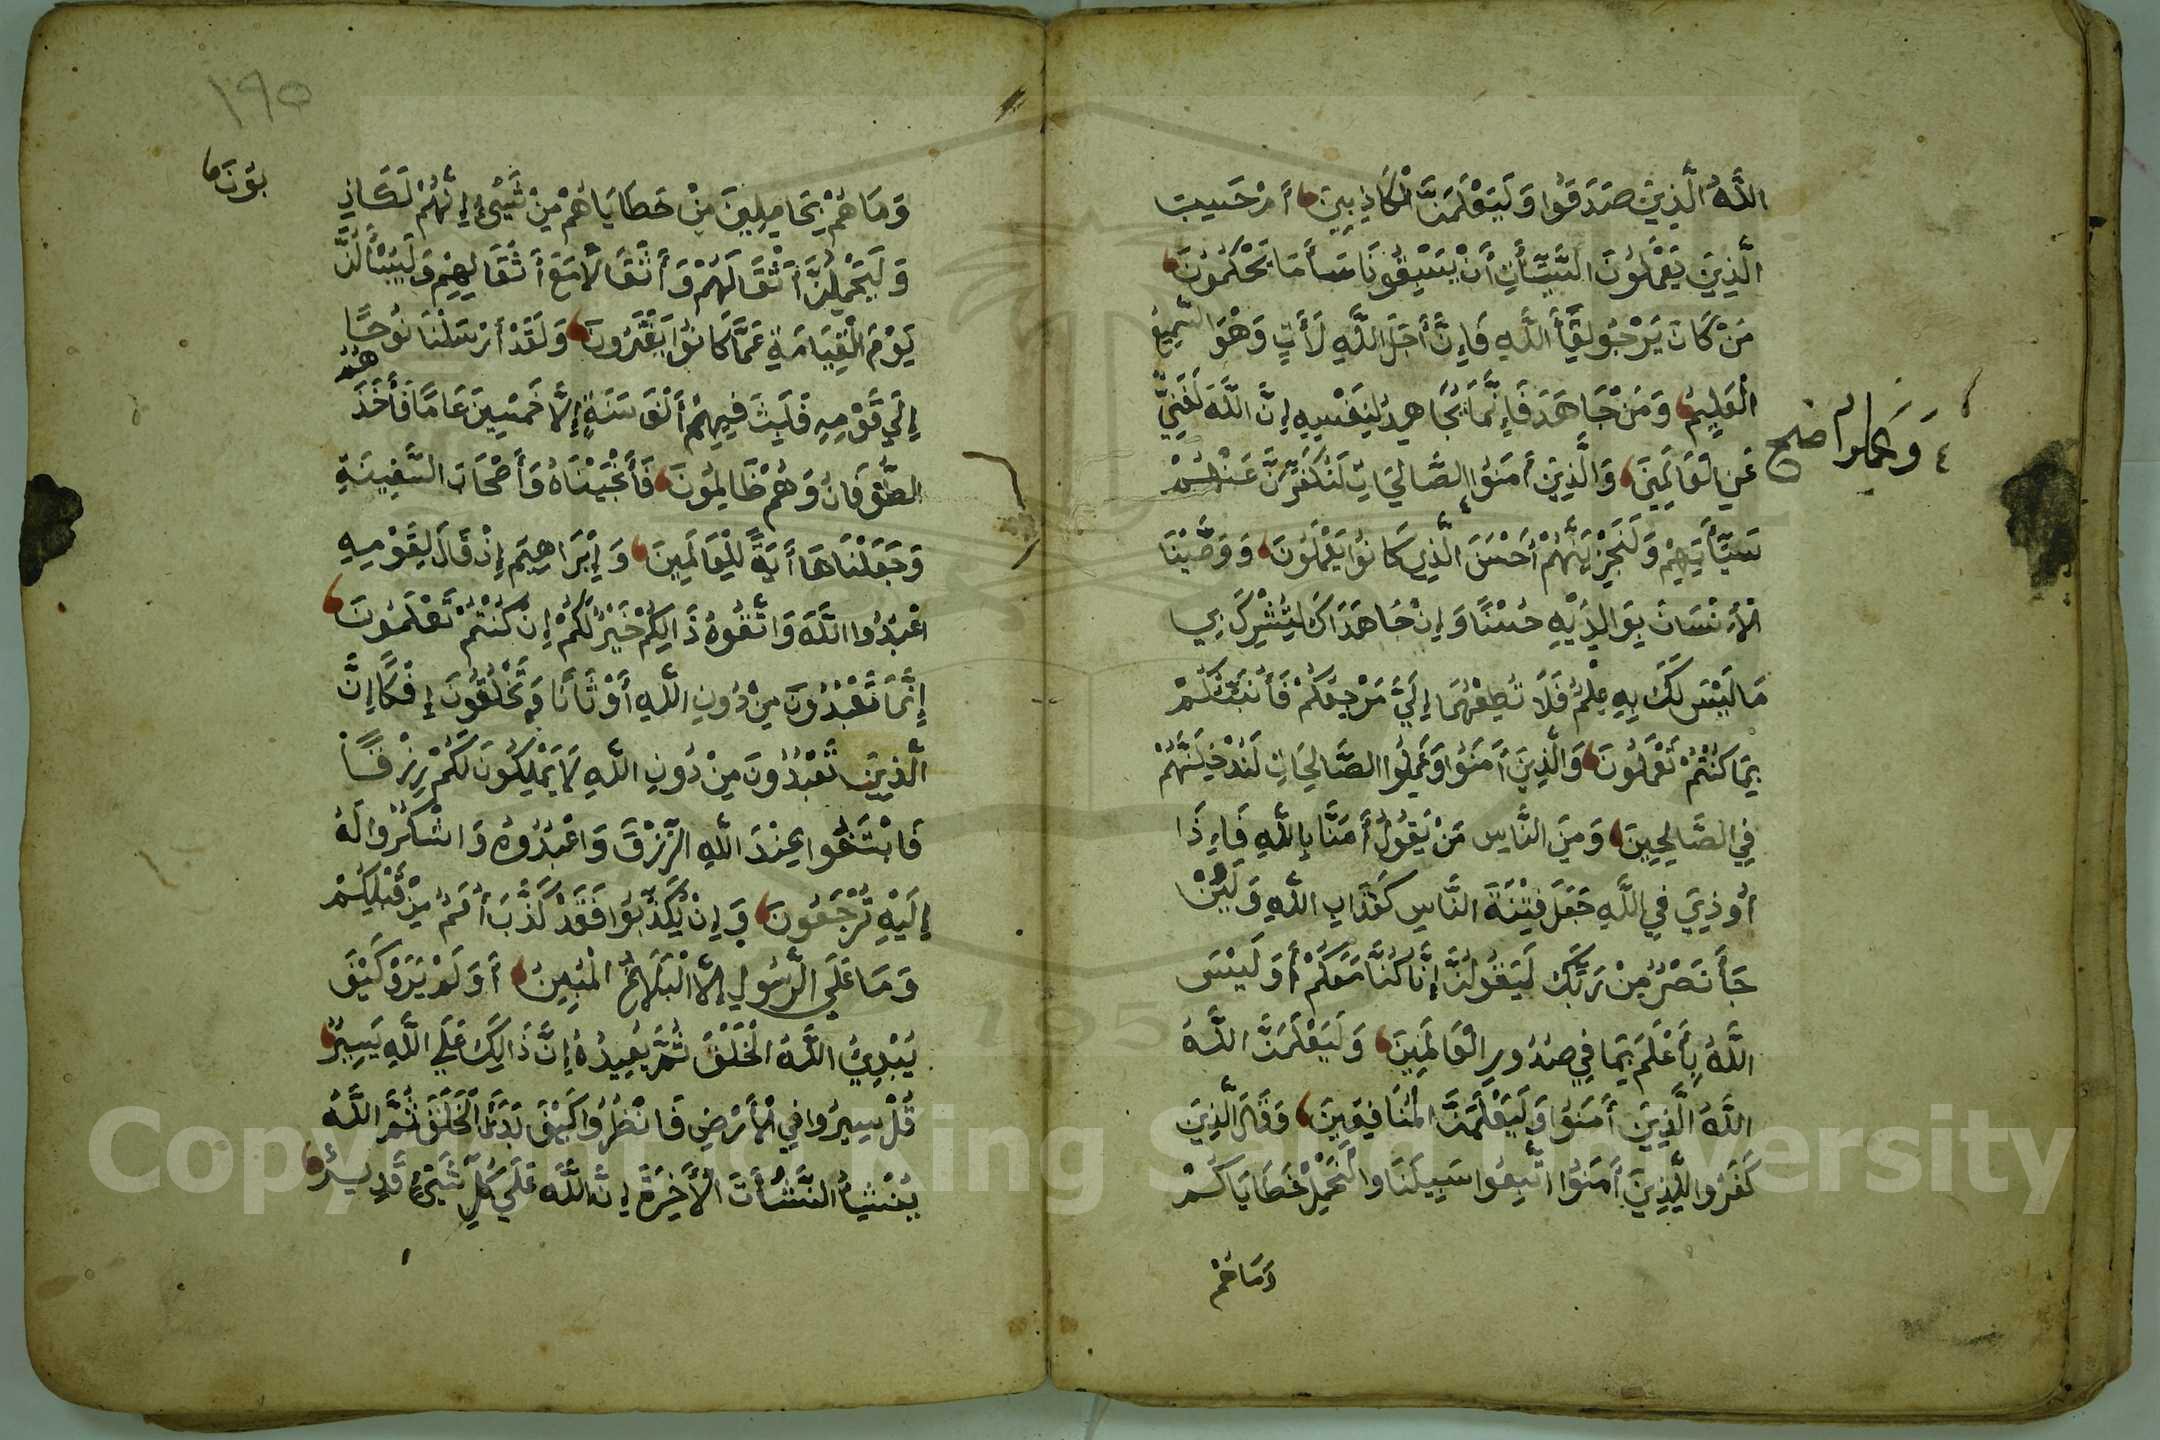 اللَّهُ الَّذِينَ صَدَقُوا وَلَيَعْلَمَنَّ الْكَاذِبِينَ أَمْ حَسِبَ
الَّذِينَ يَعْمَلُونَ السَّيِّأَتِ أَنْ يَسْبِقُونَا سَأَ مَا يَحْكُمُونَ
مَنْ كَانَ يَرْجُو لِقَأَ اللَّهِ فَإِنَّ أَجَلَ اللَّهِ لَأَتٍ وَهْوَ السَّمِيعُ
الْعَلِيمُ وَمَنْ جَاهَدَ فَإِنَّمَا يُجَاهِدُ لِنَفْسِهِ إِنَّ اللَّهَ لَغَنِيٌّ
عَنِ الْعَالَمِينَ وَالَّذِينَ أَمَنُوا الصَّالِحَاتِ لَنُكَفِّرَنَّ عَنْهُمْ
وعملوا صح
سَيِّأَتِهِمْ وَلَنَجْزِيَنَّهُمْ أَحْسَنَ الَّذِي كَانُوا يَعْمَلُونَ وَوَصَّيْنَا
الْأِنْسَانَ بِوَالِدَيْهِ حُسْنًا وَإِنْ جَاهَدَاكَ لِتُشْرِكَ بِي
مَا لَيْسَ لَكَ بِهِ عِلْمٌ فَلَا تُطِعْهُمَا إِلَيَّ مَرْجِعُكُمْ فَأُنَبِّئُكُمْ
بِمَا كُنْتُمْ تَعْمَلُونَ وَالَّذِينَ أَمَنُوا وَعَمِلُوا الصَّالِحَاتِ لَنُدْخِلَنَّهُمْ
فِي الصَّالِحِينَ وَمِنَ النَّاسِ مَنْ يَقُولُ أَمَنَّا بِاللَّهِ فَإِذَا
أُوذِيَ فِي اللَّهِ جَعَلَ فِتْنَةَ النَّاسِ كَعَذَابِ اللَّهِ وَلَئِنْ
جَأَ نَصْرٌ مِنْ رَبِّكَ لَيَقُولُنَّ إِنَّا كُنَّا مَعَكُمْ أَوَلَيْسَ
اللَّهُ بِأَعْلَمَ بِمَا فِي صُدُورِ الْعَالَمِينَ وَلَيَعْلَمَنَّ اللَّهُ
اللَّهُ الَّذِينَ أَمَنُوا وَلَيَعْلَمَنَّ الْمُنَافِقِينَ وَقَالَ الَّذِينَ
كَفَرُوا لِلَّذِينَ أَمَنُوا اتَّبِعُوا سَبِيلَنَا وَالْنَحْمِلْ خَطَايَاكُمْ
وَمَا هُمْ
١٩٥
وَمَا هُمْ بِحَامِلِينَ مِنْ خَطَايَاهُمْ مِنْ شَيْءٍ إِنَّهُمْ لَكَاذِ
بُونَ
وَلَيَحْمِلُنَّ أَثْقَالَهُمْ وَأَثْقَالًا مَعَ أَثْقَالِهِمْ وَلَيُسْأَلُنَّ
يَوْمَ الْقِيَامَةِ عَمَّا كَانُوا يَفْتَرُونَ وَلَقَدْ أَرْسَلْنَا نُوحًا
إِلَي قَوْمِهِ فَلَبِثَ فِيهِمْ أَلْفَ سَنَةٍ إِلَّا خَمْسِينَ عَامًا فَأَخَذَ
هُمُ
الطُّوفَانُ وَهُمْ ظَالِمُونَ فَأَنْجَيْنَاهُ وَأَصْحَابَ السَّفِينَةِ
وَجَعَلْنَاهَا أَيَةً لِلْعَالَمِينَ وَإِبْرَاهِيمَ إِذْ قَالَ لِقَوْمِهِ
اعْبُدُوا اللَّهَ وَاتَّقُوهُ ذَالِكُمْ خَيْرٌ لَكُمْ إِنْ كُنْتُمْ تَعْلَمُونَ
إِنَّمَا تَعْبُدُونَ مِنْ دُونِ اللَّهِ أَوْثَانًا وَتَخْلُقُونَ إِفْكًا إِنَّ
الَّذِينَ تَعْبُدُونَ مِنْ دُونِ اللَّهِ لَا يَمْلِكُونَ لَكُمْ رِزْقًا
فَابْتَغُوا عِنْدَ اللَّهِ الرِّزْقَ وَاعْبُدُوهُ وَاشْكُرُوا لَهُ
إِلَيْهِ تُرْجَعُونَ وَإِنْ تُكَذِّبُوا فَقَدْ كَذَّبَ أُمَمٌ مِنْ قَبْلِكُمْ
وَمَا عَلَي الرَّسُولِ إِلَّا الْبَلَاغُ الْمُبِينُ أَوَلَمْ يَرَوْ كَيْفَ
يُبْدِيُ اللَّهُ الْخَلْقَ ثُمَّ يُعِيدُهُ إِنَّ ذَالِكَ عَلَي اللَّهِ يَسِيرٌ
قُلْ سِيرُوا فِي الْأَرْضِ فَانْظُرُوا كَيْفَ بَدَأَ الْخَلْقَ ثُمَّ اللَّهُ
يُنْشِيُ النَّشْأَتَ الْأَخِرَةَ إِنَّ اللَّهَ عَلَي كُلِّ شَيْءٍ قَدِيرٌ
Copyright © King Saud University